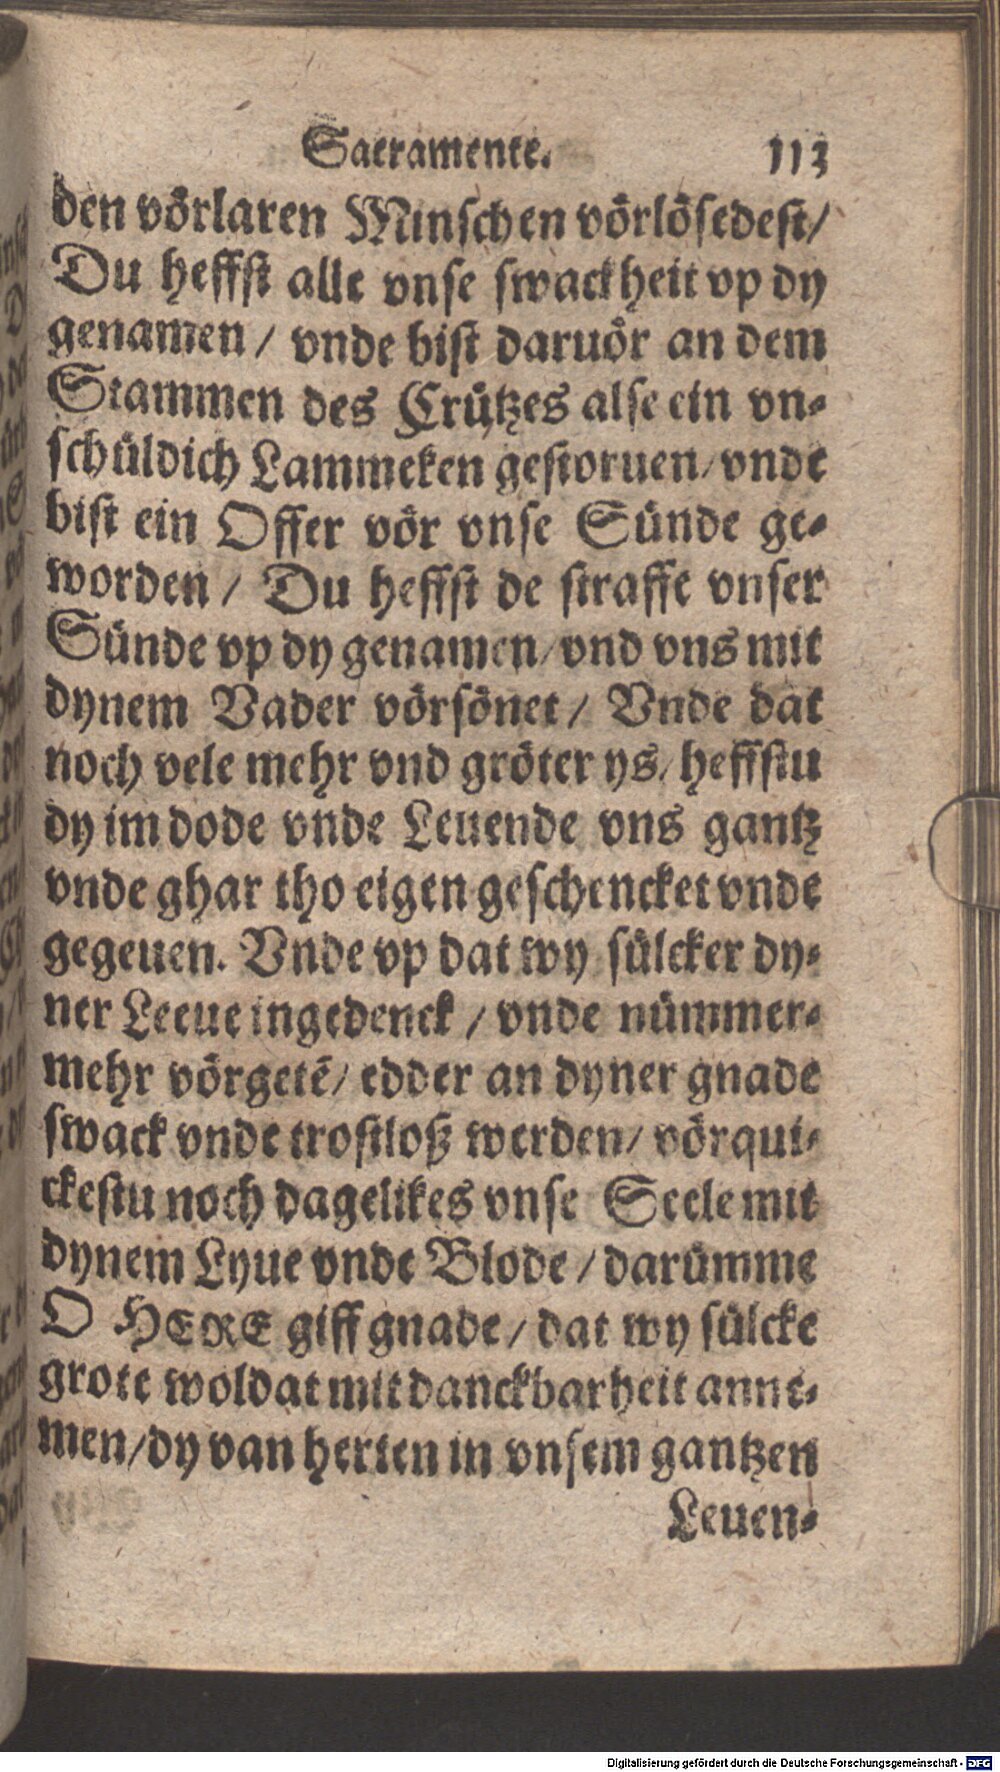 Sacramente. 113
den vörlaren Minschen vörlösedest/
Du heffst alle vnse swackheit vp dy
genamen / vnde bist daruör an dem
Stammen des Crützes alse ein vn-
schüldich Lammeken gestoruen/ vnde
bist ein Offer vör vnse Sünde ge-
worden / Du heffst de straffe vnser
Sünde vp dy genamen/ vnd vns mit
dynem Vader vörsönet / Vnde dat
noch vele mehr vnd gröter ys/ heffstu
dy im dode vnde Leuende vns gantz
vnde ghar tho eigen geschencket vnde
gegeuen. Vnde vp dat wy sülcker dy-
ner Leeue ingedenck / vnde nümmer-
mehr vörgetē/ edder an dyner gnade
swack vnde trostloß werden/ vörqui-
ckestu noch dagelikes vnse Seele mit
dynem Lyue vnde Blode / darümme
O HERE giff gnade / dat wy sülcke
grote woldat mit danckbarheit anne-
men/dy van herten in vnsem gantzen
Leuen-
Digitalisierung gefördert durch die Deutsche Forschungsgemeinschaft - DFG